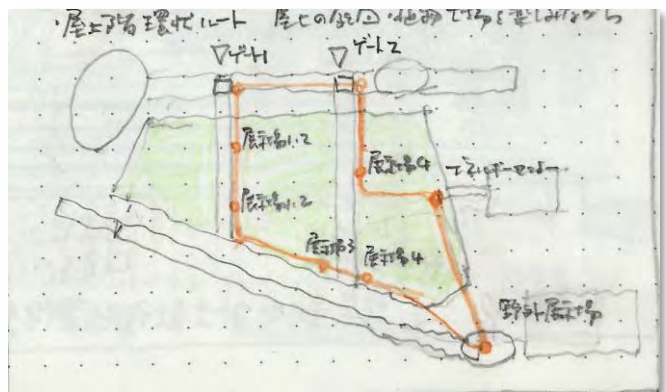 ・屋上階環状ルート 屋上の庭園・植物工場を楽しみながら
▽ゲート1
▽ゲート2
展示場1,2
展示場4
エネルギーセンター
展示場1,2
展示場3
展示場4
野外展示場